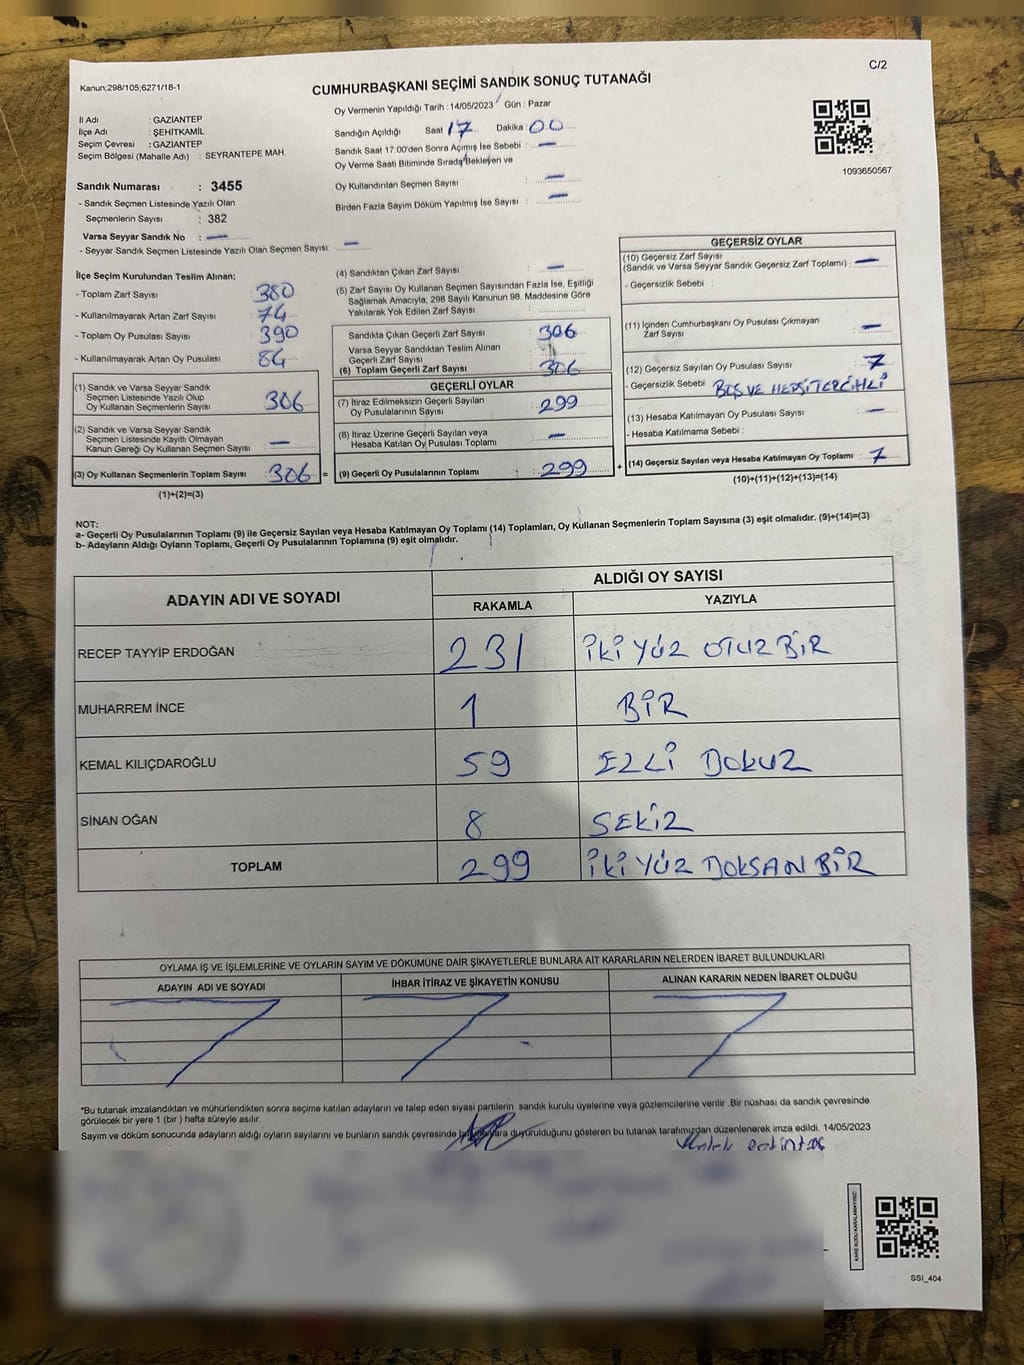 C/2
Kanun;298/105;6271/18-1
CUMHURBAŞKANI SEÇİMİ SANDIK SONUÇ TUTANAĞI
İl Adı : GAZİANTEP
İlçe Adı : ŞEHİTKAMİL
Seçim Çevresi : GAZİANTEP
Seçim Bölgesi (Mahalle Adı) : SEYRANTEPE MAH.
Oy Vermenin Yapıldığı Tarih : 14/05/2023 Gün : Pazar
Sandığın Açıldığı Saat 17 Dakika 00
Sandık Saat 17:00'den Sonra Açımış İse Sebebi : —
Oy Verme Saati Bitiminde Sırada Bekleyen ve
Oy Kullandırılan Seçmen Sayısı : —
Birden Fazla Sayım Döküm Yapılmış İse Sayısı : —
1093650567
Sandık Numarası : 3455
- Sandık Seçmen Listesinde Yazılı Olan
Seçmenlerin Sayısı : 382
Varsa Seyyar Sandık No : —
- Seyyar Sandık Seçmen Listesinde Yazılı Olan Seçmen Sayısı: —
İlçe Seçim Kurulundan Teslim Alınan;
- Toplam Zarf Sayısı 380
- Kullanılmayarak Artan Zarf Sayısı 74
- Toplam Oy Pusulası Sayısı 390
- Kullanılmayarak Artan Oy Pusulası 84
(1) Sandık ve Varsa Seyyar Sandık
Seçmen Listesinde Yazılı Olup
Oy Kullanan Seçmenlerin Sayısı 306
(2) Sandık ve Varsa Seyyar Sandık
Seçmen Listesinde Kayıtlı Olmayan
Kanun Gereği Oy Kullanan Seçmen Sayısı —
(3) Oy Kullanan Seçmenlerin Toplam Sayısı : 306 =
(1)+(2)=(3)
(4) Sandıktan Çıkan Zarf Sayısı : —
(5) Zarf Sayısı Oy Kullanan Seçmen Sayısından Fazla İse, Eşitliği
Sağlamak Amacıyla, 298 Sayılı Kanunun 98. Maddesine Göre
Yakılarak Yok Edilen Zarf Sayısı :
Sandıkta Çıkan Geçerli Zarf Sayısı 306
Varsa Seyyar Sandıktan Teslim Alınan
Geçerli Zarf Sayısı
(6) Toplam Geçerli Zarf Sayısı : 306
GEÇERLİ OYLAR
(7) İtiraz Edilmeksizin Geçerli Sayılan
Oy Pusulalarının Sayısı : 299
(8) İtiraz Üzerine Geçerli Sayılan veya
Hesaba Katılan Oy Pusulası Toplamı : —
(9) Geçerli Oy Pusulalarının Toplamı : 299 +
GEÇERSİZ OYLAR
(10) Geçersiz Zarf Sayısı
(Sandık ve Varsa Seyyar Sandık Geçersiz Zarf Toplamı) : —
- Geçersizlik Sebebi :
(11) İçinden Cumhurbaşkanı Oy Pusulası Çıkmayan
Zarf Sayısı : —
(12) Geçersiz Sayılan Oy Pusulası Sayısı : 7
- Geçersizlik Sebebi BOŞ VE HEPSİ TERCİHLİ
(13) Hesaba Katılmayan Oy Pusulası Sayısı : —
- Hesaba Katılmama Sebebi :
(14) Geçersiz Sayılan veya Hesaba Katılmayan Oy Toplamı : 7
(10)+(11)+(12)+(13)=(14)
NOT:
a- Geçerli Oy Pusulalarının Toplamı (9) ile Geçersiz Sayılan veya Hesaba Katılmayan Oy Toplamı (14) Toplamları, Oy Kullanan Seçmenlerin Toplam Sayısına (3) eşit olmalıdır. (9)+(14)=(3)
b- Adayların Aldığı Oyların Toplamı, Geçerli Oy Pusulalarının Toplamına (9) eşit olmalıdır.
ADAYIN ADI VE SOYADI
ALDIĞI OY SAYISI
RAKAMLA YAZIYLA
RECEP TAYYİP ERDOĞAN 231 İKİ YÜZ OTUZ BİR
MUHARREM İNCE 1 BİR
KEMAL KILIÇDAROĞLU 59 ELLİ DOKUZ
SİNAN OĞAN 8 SEKİZ
TOPLAM 299 İKİ YÜZ DOKSAN BİR
OYLAMA İŞ VE İŞLEMLERİNE VE OYLARIN SAYIM VE DÖKÜMÜNE DAİR ŞİKAYETLERLE BUNLARA AİT KARARLARIN NELERDEN İBARET BULUNDUKLARI
ADAYIN ADI VE SOYADI İHBAR İTİRAZ VE ŞİKAYETİN KONUSU ALINAN KARARIN NEDEN İBARET OLDUĞU
*Bu tutanak imzalandıktan ve mühürlendikten sonra seçime katılan adayların ve talep eden siyasi partilerin sandık kurulu üyelerine veya gözlemcilerine verilir .Bir nüshası da sandık çevresinde
görülecek bir yere 1 (bir ) hafta süreyle asılır.
Sayım ve döküm sonucunda adayların aldığı oyların sayılarını ve bunların sandık çevresinde duyurulduğunu gösteren bu tutanak tarafımızdan düzenlenerek imza edildi. 14/05/2023
KARE KODU KARALAMAYINIZ!
SSI_404